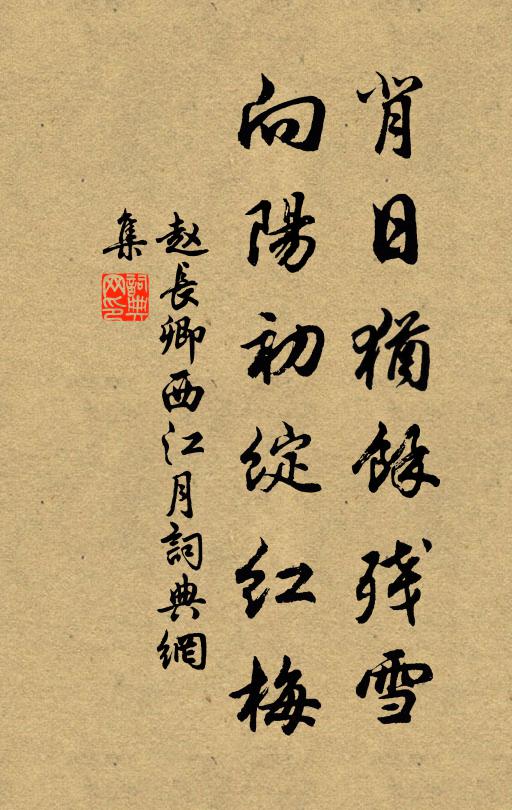 背日猶餘残雪
向陽初綻紅梅
赵長卿西江月詞典網
集
詞典
网印